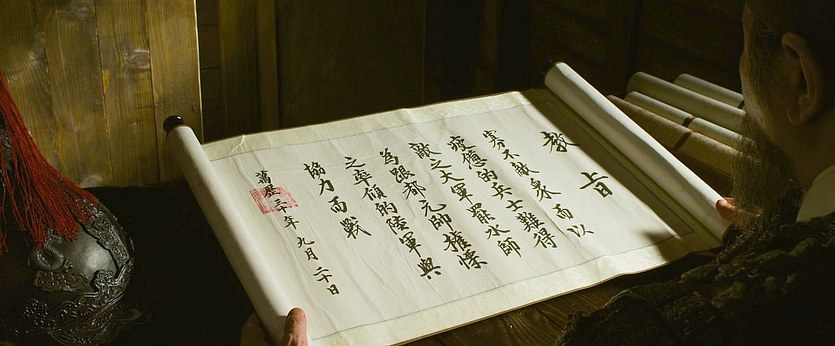 教旨
寡不敵衆而以
疲憊的兵士難得
敵之大軍罷水師
為跟都元帥權慄
之率領的陸軍與
協力而戰
萬歷三年九月二十日